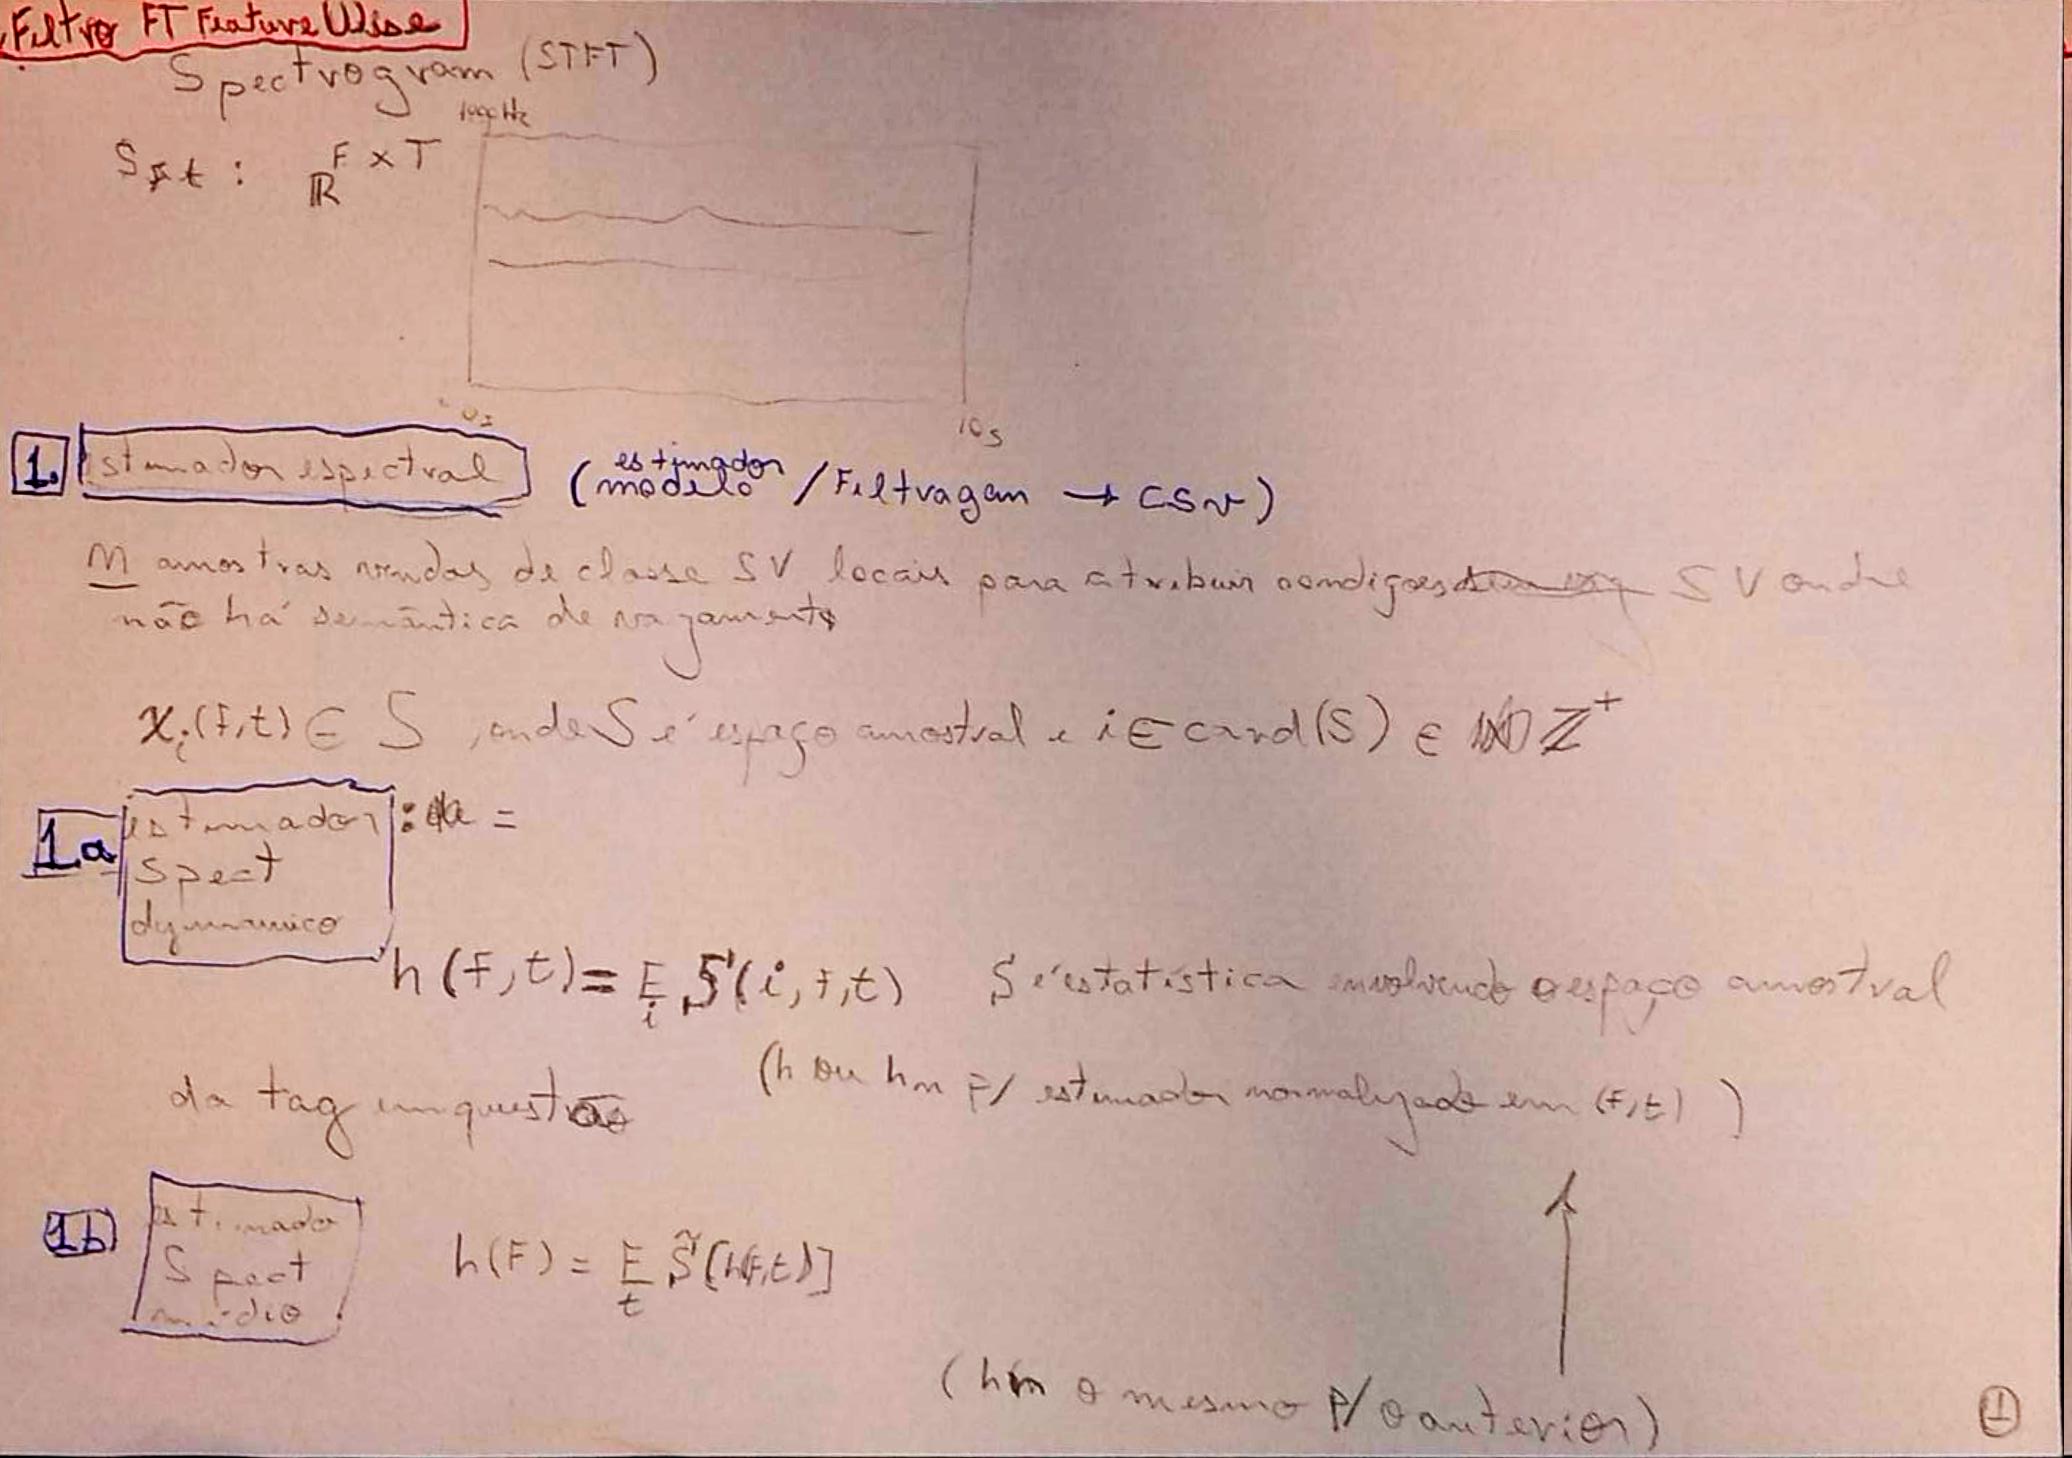 Filtro FT Feature Wise
Spectrogram (STFT)
1000 Hz
S_{Ft} : ℝ^{F x T}
0s
10s
1. Estimador espectral (estimador modelo / Filtragem → CSV)
M amostras de classe SV locais para atribuir condições SV onde
não há semântica de vazamento
x_i(F,t) ∈ S, onde S é espaço amostral e i ∈ card(S) ∈ Z^+
1a estimador : =
Spect
dynamico
h(F,t) = E_i S(i,F,t) S é estatística envolvendo o espaço amostral
da tag em questão (h ou hn p/ estimador normalizado em (F,t))
1b estimado
Spect
médio
h(F) = E_t S̃[h(F,t)]
(hn o mesmo p/ o anterior)
1